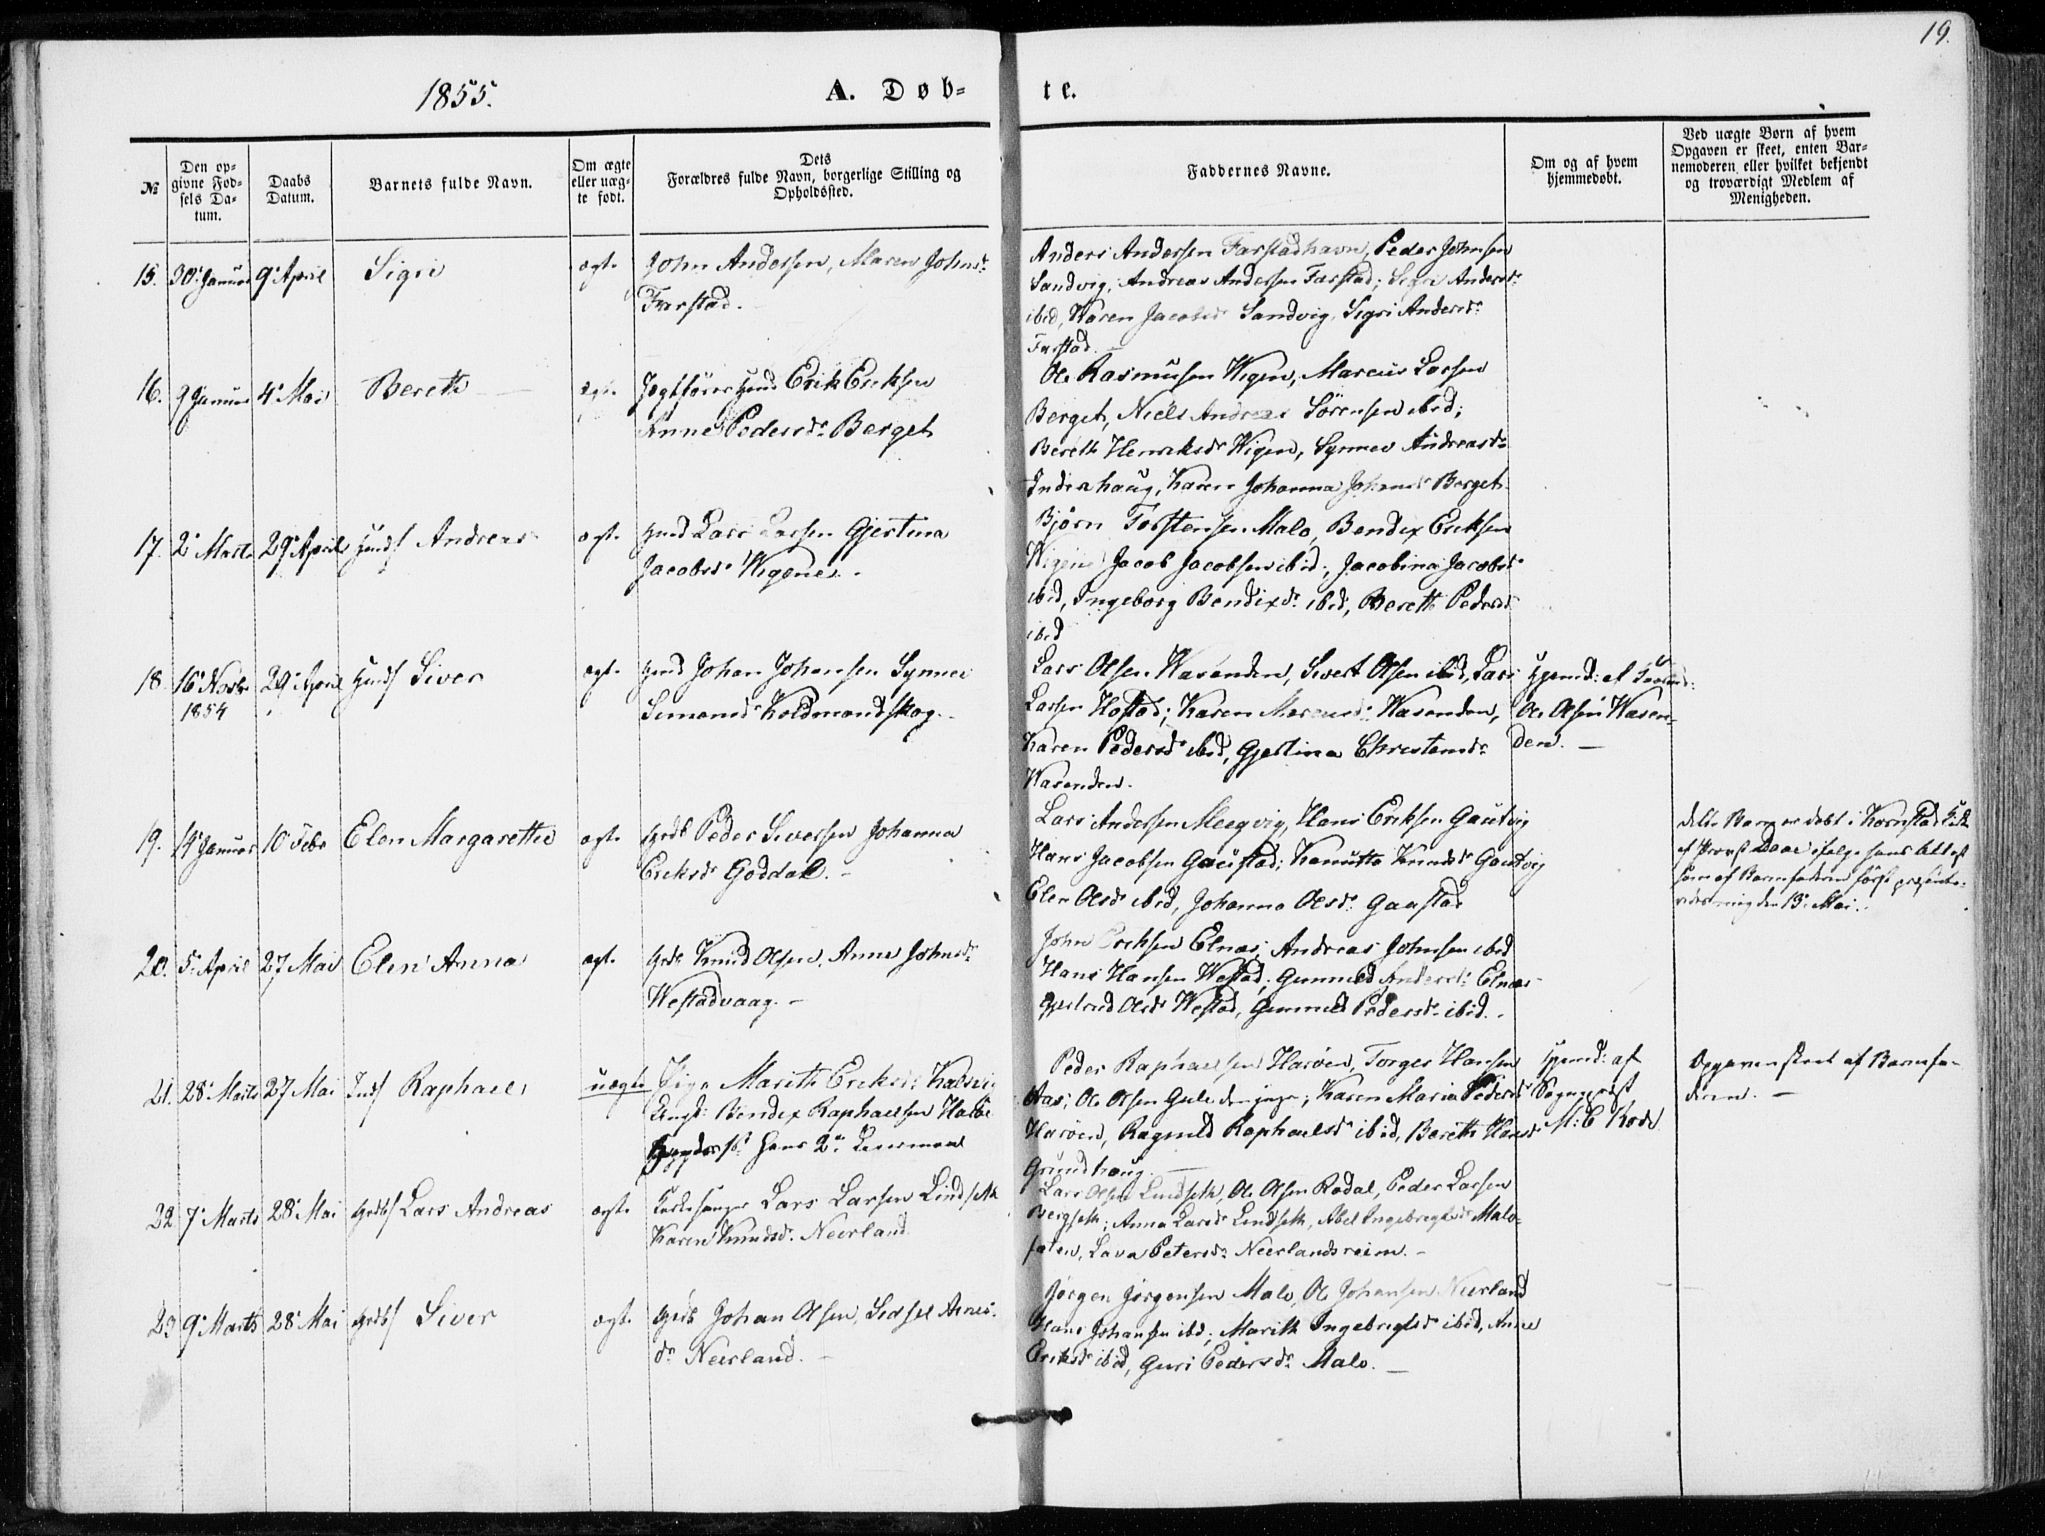 19.
1855.
A. Døb-
te.
№
Den op-
givne Fød-
sels Da-
tum.
Daabs
Datum.
Barnets fulde Navn.
Om ægte
eller uæg-
te født.
Dets
Forældres fulde Navn, borgerlige Stilling og
Opholdssted.
Faddernes Navne.
Om og af hvem
hjemmedøbt.
Ved uægte Børn af hvem
Opgaven er skeet, enten Bar-
nemoderen eller hvilket bekjendt
og troværdigt Medlem af
Menigheden.
15. 30' Januar 9' April Sigri ægte John Andersen, Maren Johnsd:
Farstad.
Anders Andersen Farstadhavn, Peder Johnsen
Sandvig, Andreas Andersen Farstad; Sigri Andersd:
ibid, Karen Jacobsd: Sandvig, Sigri Andersd:
Farstad.
16. 9 Januar 4' Mai Bereth ægte Erik Eriksen
Anne Pedersd: Berget
Ole Rasmusen Wigen, Marcus Larsen
Berget, Niels Andreas Sörensen ibid;
Bereth Henriksd: Wigen, Synnev Andreasd:
Inderhaug, Karen Johanna Johansd: Berget.
17. 2' Marts 29' April Andreas ægte Lars Larsen Gjertina
Jacobsd: Wigene.
Björn Torstensen Malo, Bendix Eriksen
Wigene Jacob Jacobsen ibid; Jacobina Jacobsd:
ibid, Ingeborg Bendixd: ibid, Bereth Pedersd:
ibid
18. 16' Novbr 29' April Siver ægte Johan Johansen Synnev
1854
Simensd: Holdmandskog.
Lars Olsen Wasenden, Sivert Olsen ibid, Lars
Larsen Hostad; Karen Marcusd: Wasenden,
Karen Pedersd: ibid, Gjertina Christensd:
Wasenden.
Hjemd: af
Ole Olsen Wasen-
den.
19. 14' Januar 10' Febr Elen Margarethe ægte Peder Siversen Johanna
Eriksd: Goddal.
Lars Andersen Meegvig, Hans Eriksen Gautvig
Hans Jacobsen Gaustad; Kanutta Knudsd: Gautvig
Elen Olsd: ibid, Johanna Olsd: Gaustad
dette Barn er døbt i Kornstad Kirke
af Provst Daae ifølge hans Attest
som af Barnfaderen først presente-
redes mig den 13' Mai.
20. 5' April 27 Mai Elen Anna ægte Knud Olsen, Anne Johnsd:
Westadvaag.
John Eriksen Elnæs, Andreas Johnsen ibid
Hans Hansen Westad; Gunnild Andersd: Elnæs
Gjertrud Olsd: Westad, Gunnild Pedersd: ibid.
21. 28' Marts 27 Mai Raphael uægte Pige Marith Eriksd:
Ungk: Bendix Raphaelsen Haröe
hans 2' Leiermaal
Peder Raphaelsen Haröen, Torger Hansen
Aas; Ole Olsen Gule den yngre; Karen Maria Pedersd:
Haröen, Ragnild Raphaelsd: ibid, Bereth Hansd:
Grundhaug.
Hjemd: af
Sogneprest
M: C Kode
Opgaven skeet af Barnefa-
deren.
22 7' Marts 28' Mai Lars Andreas ægte Kirkesanger Lars Larsen Lindseth
Karen Knudsd: Neerland
Lars Olsen Lindseth, Ole Olsen Rødal, Peder Larsen
Bergseth; Anna Larsd: Lindseth, Abel Ingebregtsd: Malo-
sæten, Lava Petersd: Neerlandsreim.
23 9' Marts 28' Mai Siver ægte Johan Olsen, Sidsel Arnes-
d: Neerland.
Jørgen Jørgensen Malo, Ole Johansen Neerland
Hans Johansen ibd; Marith Ingebregtsd: ibid, Anne
Eriksd: ibid, Guri Pedersd: Malo.